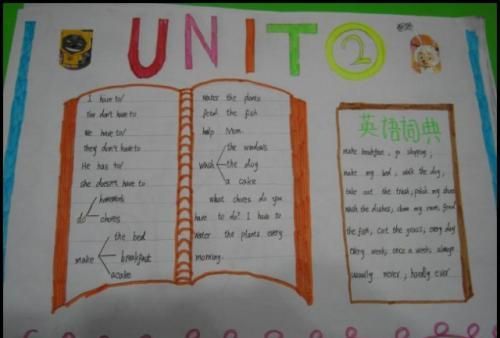 UNIT 2
I have to/
You don't have to
We have to/
They don't have to
He has to/
she doesn't have to
do homework
chores
make the bed
breakfast
acake
Water the plants
feed the fish
help Mom
wash the windows
the dog
a cake
what chores do you
have to do? I have to
water the plants every
morning.
英语词典
make breakfast, go shopping,
make my bed, walk the dog,
take out the trash, polish my shoes
wash the dishes, clean my room, feed
the fish, cut the grass, every day
every week, once a week, always
usually never, hardly ever